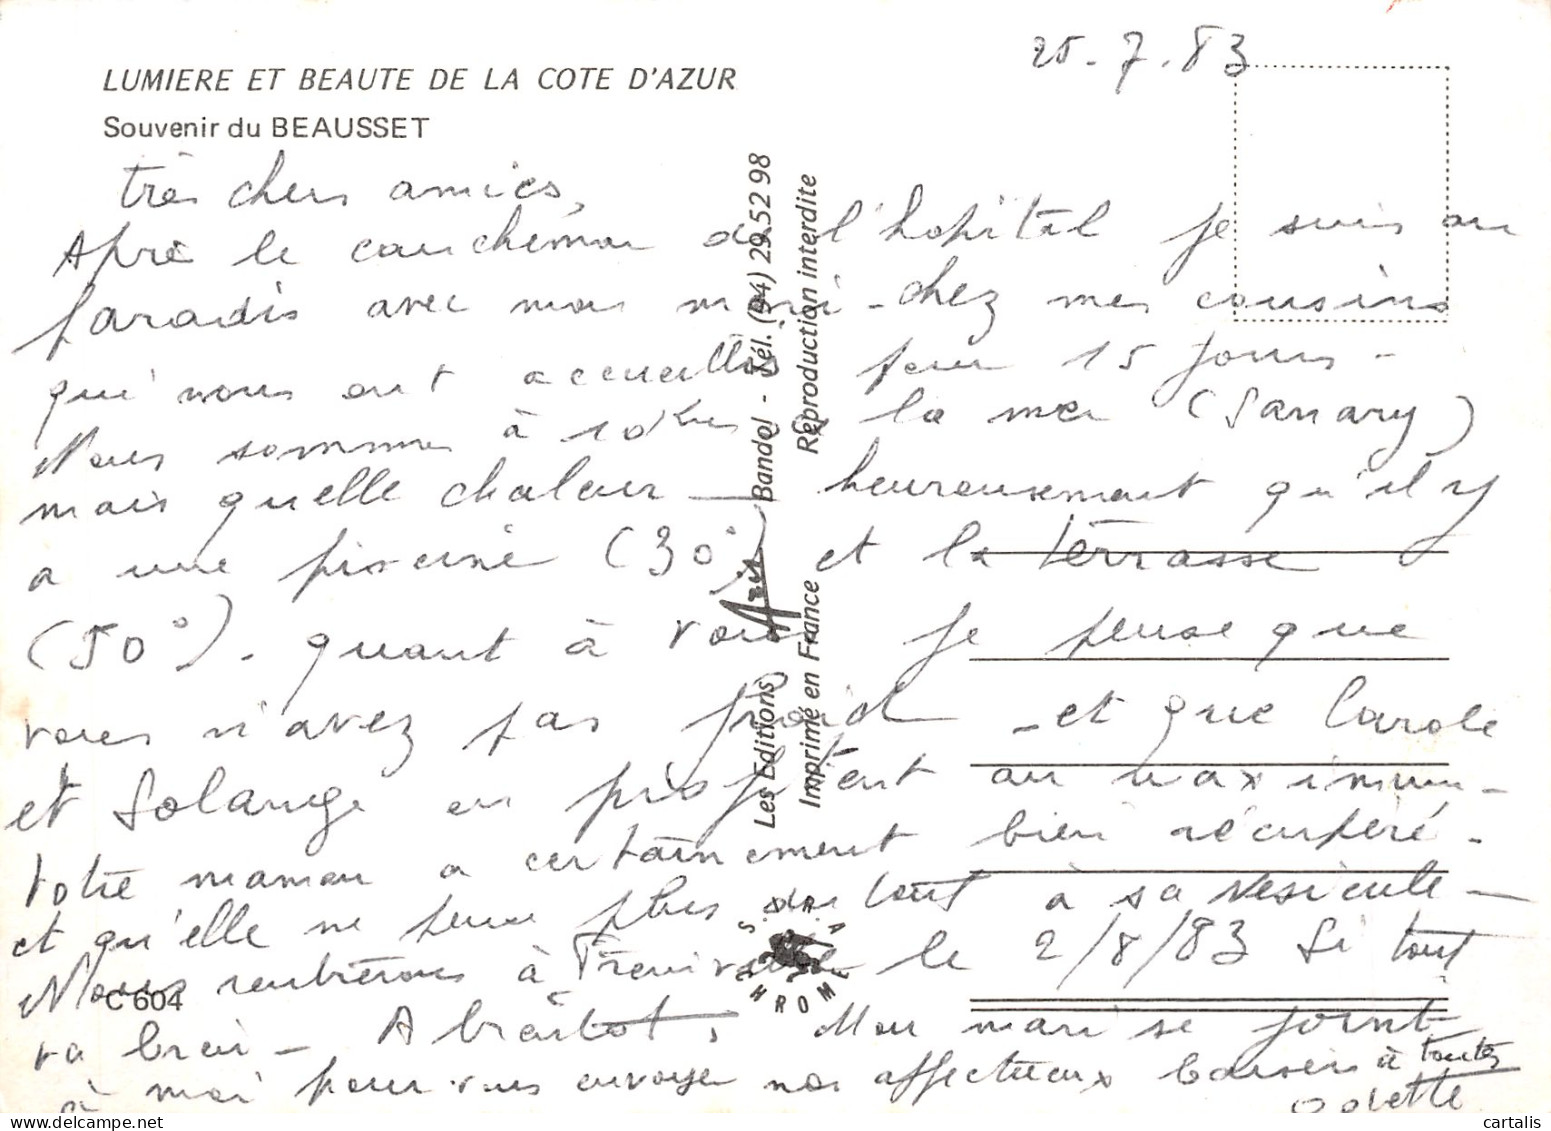 25.7.83
LUMIERE ET BEAUTE DE LA COTE D'AZUR
Souvenir du BEAUSSET
très chers amies,
Après le cauchemar de l'hôpital je suis au
paradis avec mon mari - chez mes cousins
qui nous ont accueillis pour 15 jours -
Nous sommes à 10 kms de la mer (Sanary)
mais quelle chaleur - heureusement qu'il y
a une piscine (30°) et la terrasse
(50°). quant à vous je pense que
vous n'avez pas froid - et que Carole
et Solange en profitent au maximum -
Votre maman a certainement bien récupéré -
et qu'elle ne pense plus du tout à sa vésicule -
Nous rentrerons à le 2/8/83 Si tout
va bien - A bientôt, Mon mari se joint
à moi pour vous envoyer nos affectueux baisers à toutes
Odette
Les Editions Aris Bandol - Tél. (94) 29 52 98
Imprimé en France Reproduction interdite
C 604